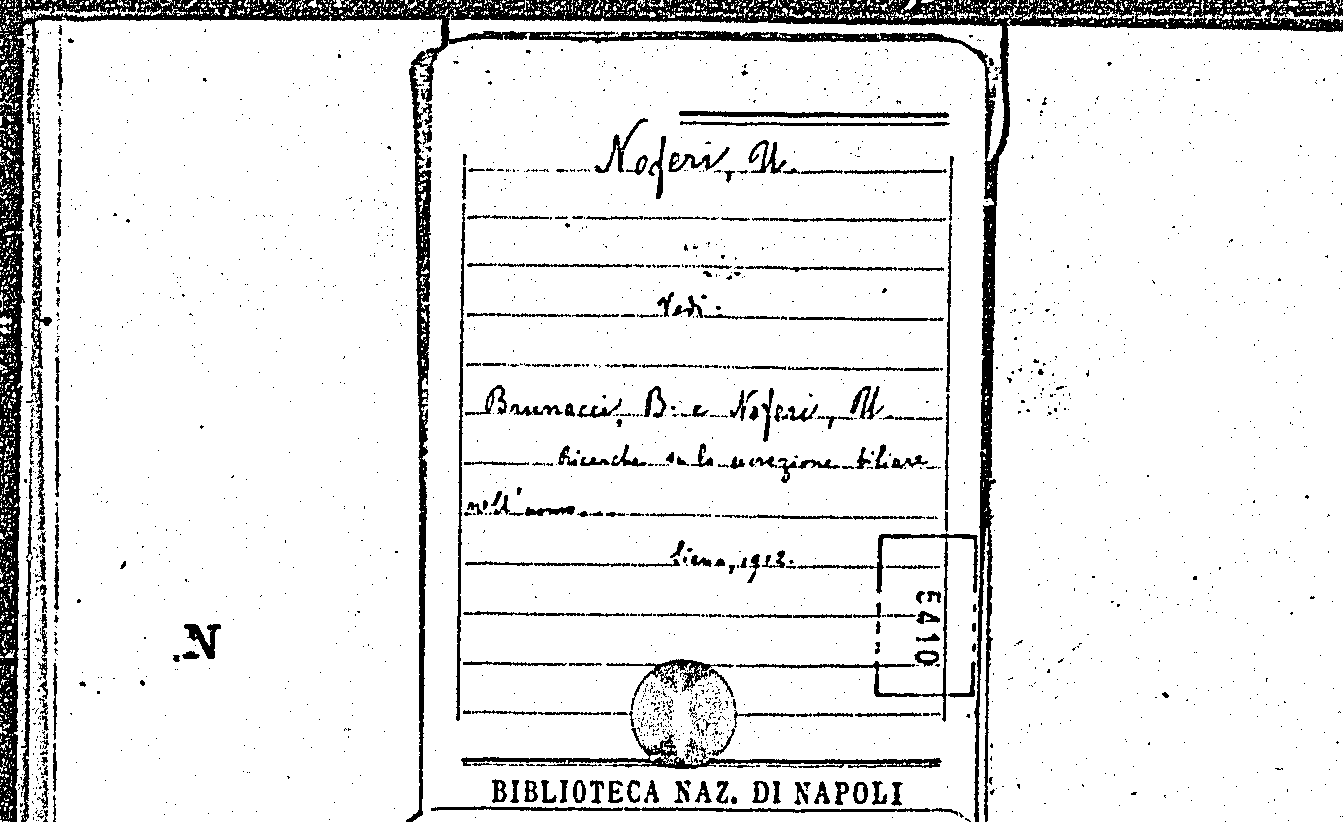 Noferi, U.
Vedi:
Brunacci, B. e Noferi, U.
Ricerche su la secrezione biliare
nell'uomo....
Siena, 1912.
E410
N
BIBLIOTECA NAZ. DI NAPOLI